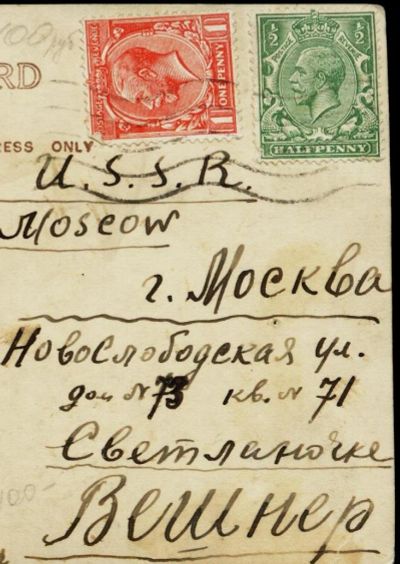 100 руб
RD
RESS ONLY
POSTAGE REVENUE
ONE PENNY
1 1
1/2 1/2
HALFPENNY
U.S.S.R.
Moscow
г. Москва
Новослободская ул.
дом № 73 кв. № 71
Светланочке
Вешнер
100-